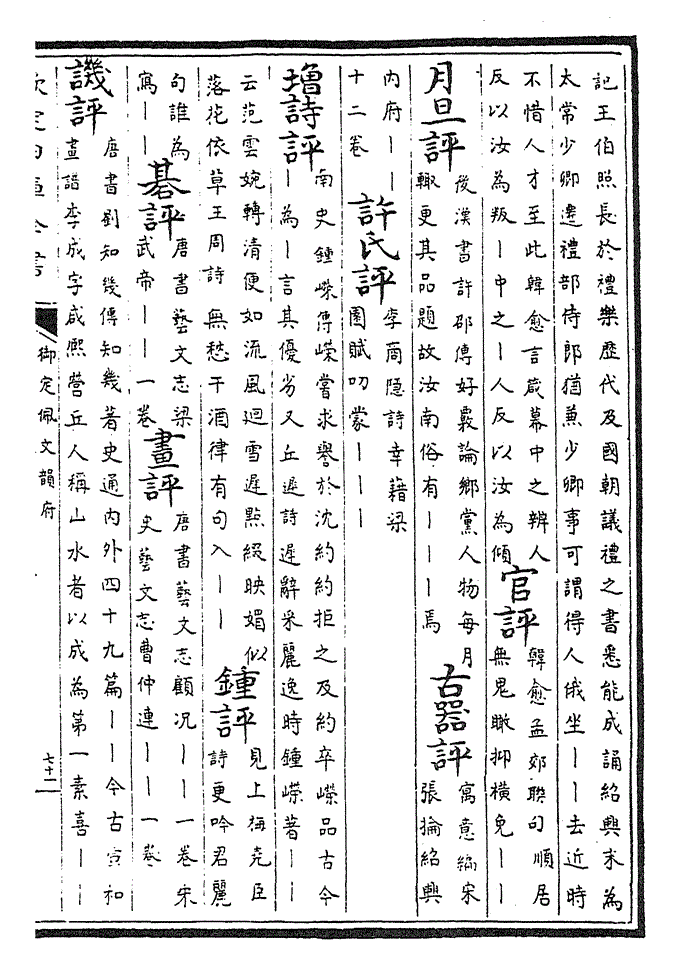 記王伯照長於禮樂歷代及國朝議禮之書悉能成誦紹興末為
太常少卿遷禮部侍郎猶兼少卿事可謂得人俄坐丨丨去近時
不惜人才至此韓愈言箴幕中之辨人
反以汝為叛丨中之丨人反以汝為傾
官評
韓愈孟郊聯句順居
無鬼瞰抑橫免丨丨
月旦評
後漢書許邵傳好覈論鄉黨人物每月
輙更其品題故汝南俗有丨丨丨焉
古器評
寓意編宋
張掄紹興
内府丨丨
十二卷
許氏評
李商隱詩幸藉梁
園賦叨蒙丨丨丨
增詩評
南史鍾嶸傳嶸嘗求譽於沈約約拒之及約卒嶸品古今
丨為丨言其優劣又丘遲詩遲辭采麗逸時鍾嶸著丨丨
云范雲婉轉清便如流風迴雪遲點綴映媚似
落花依草王周詩無愁干酒律有句入丨丨
鍾評
見上梅堯臣
詩更吟君麗
句誰為
寫丨丨
棊評
唐書藝文志梁
武帝丨丨一卷
畫評
唐書藝文志顧况丨丨一卷宋
史藝文志曹仲連丨丨一卷
譏評
唐書劉知幾傳知幾著史通内外四十九篇丨丨今古宣和
畫譜李成字咸熙營丘人稱山水者以成為第一素喜丨丨
御定佩文韻府
七十一